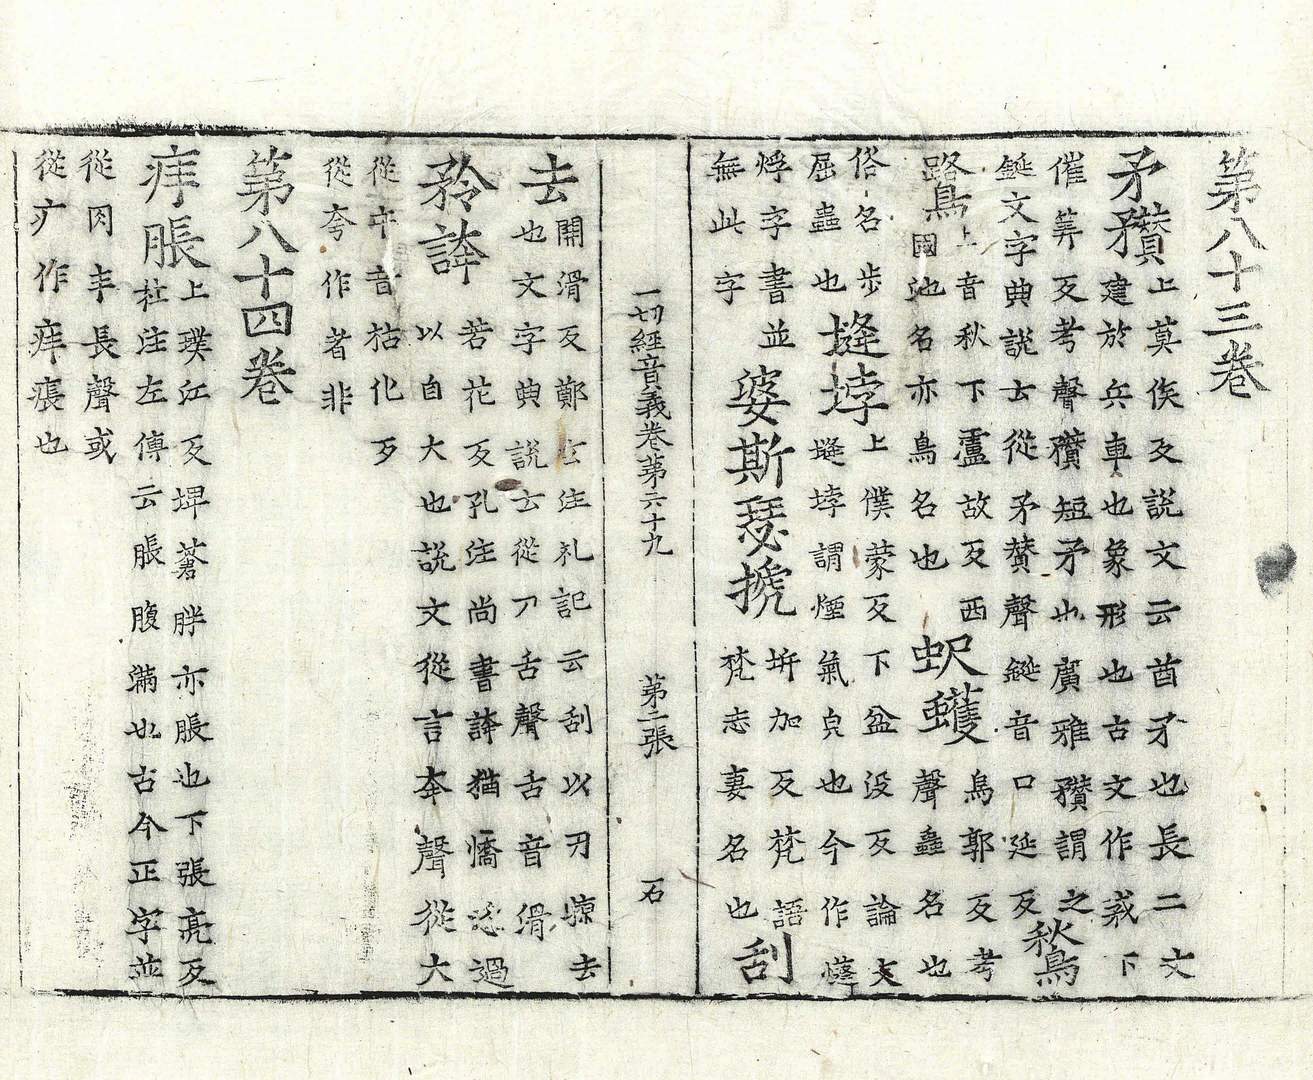 第八十三卷
矛矟上莫侯反說文云酋矛也長二丈
建於兵車也象形也古文作𢦧下
催筭反考聲矟短矛也廣雅矟謂之
鋋文字典說士從矛贊聲鋋音口延反
鶖鷺上音秋下盧故反西
國池名亦鳥名也
蚇蠖烏郭反考
聲蟲名也
俗名步
屈蟲也
㷯㶿上僕蒙反下盆没反論文
㷯㶿謂煙氣皃也今作㷯
㶿字書並
無此字
婆斯瑟搋坼加反梵語
梵志妻名也
刮
一切經音義卷第六十九 第二張 石
去關滑反鄭玄注礼記云刮以刃摖去
也文字典說士從刀舌聲舌音滑
矜誇若花反孔注尚書誇猶憍恣過
以自大也說文從言夸聲從大
從䒓音枯化反
從夸作者非
第八十四卷
痒脹上璞江反埤蒼胖亦脹也下張亮反
杜注左傳云脹腹滿也古今正字並
從肉丰長聲或
從疒作痒痮也